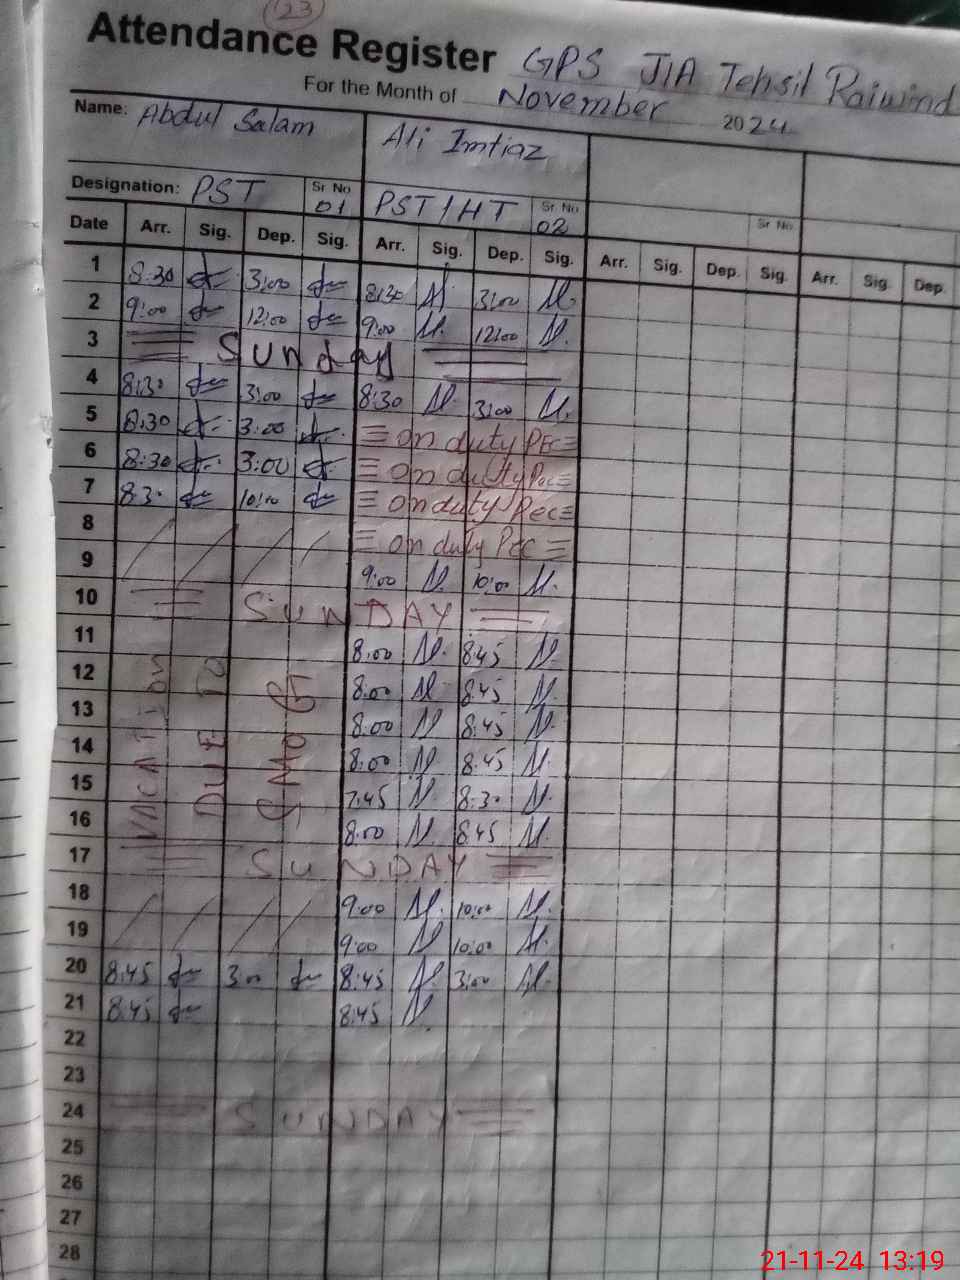 23
Attendance Register GPS JIA Tehsil Raiwind
For the Month of November 2024
Name: Abdul Salam Ali Imtiaz
Designation: PST Sr No 01 PST/HT Sr. No 02 Sr No.
Date Arr. Sig. Dep. Sig. Arr. Sig. Dep. Sig. Arr. Sig. Dep. Sig. Arr. Sig. Dep.
1 8:30 3:00 8:30 3:00
2 9:00 12:00 9:00 12:00
3 Sunday
4 8:30 3:00 8:30 3:00
5 8:30 3:00 on duty PEC
6 8:30 3:00 on duty Pec
7 8:30 10:00 on duty Pec
8 on duty Pec
9 9:00 10:00
10 SUNDAY
11 8:00 8:45
12 8:00 8:45
13 8:00 8:45
14 8:00 8:45
15 7:45 8:30
16 8:00 8:45
VACATION
DUE TO
SMOG
17 SUNDAY
18 9:00 10:00
19 9:00 10:00
20 8:45 3:00 8:45 3:00
21 8:45 8:45
22
23
24 SUNDAY
25
26
27
28
21-11-24 13:19